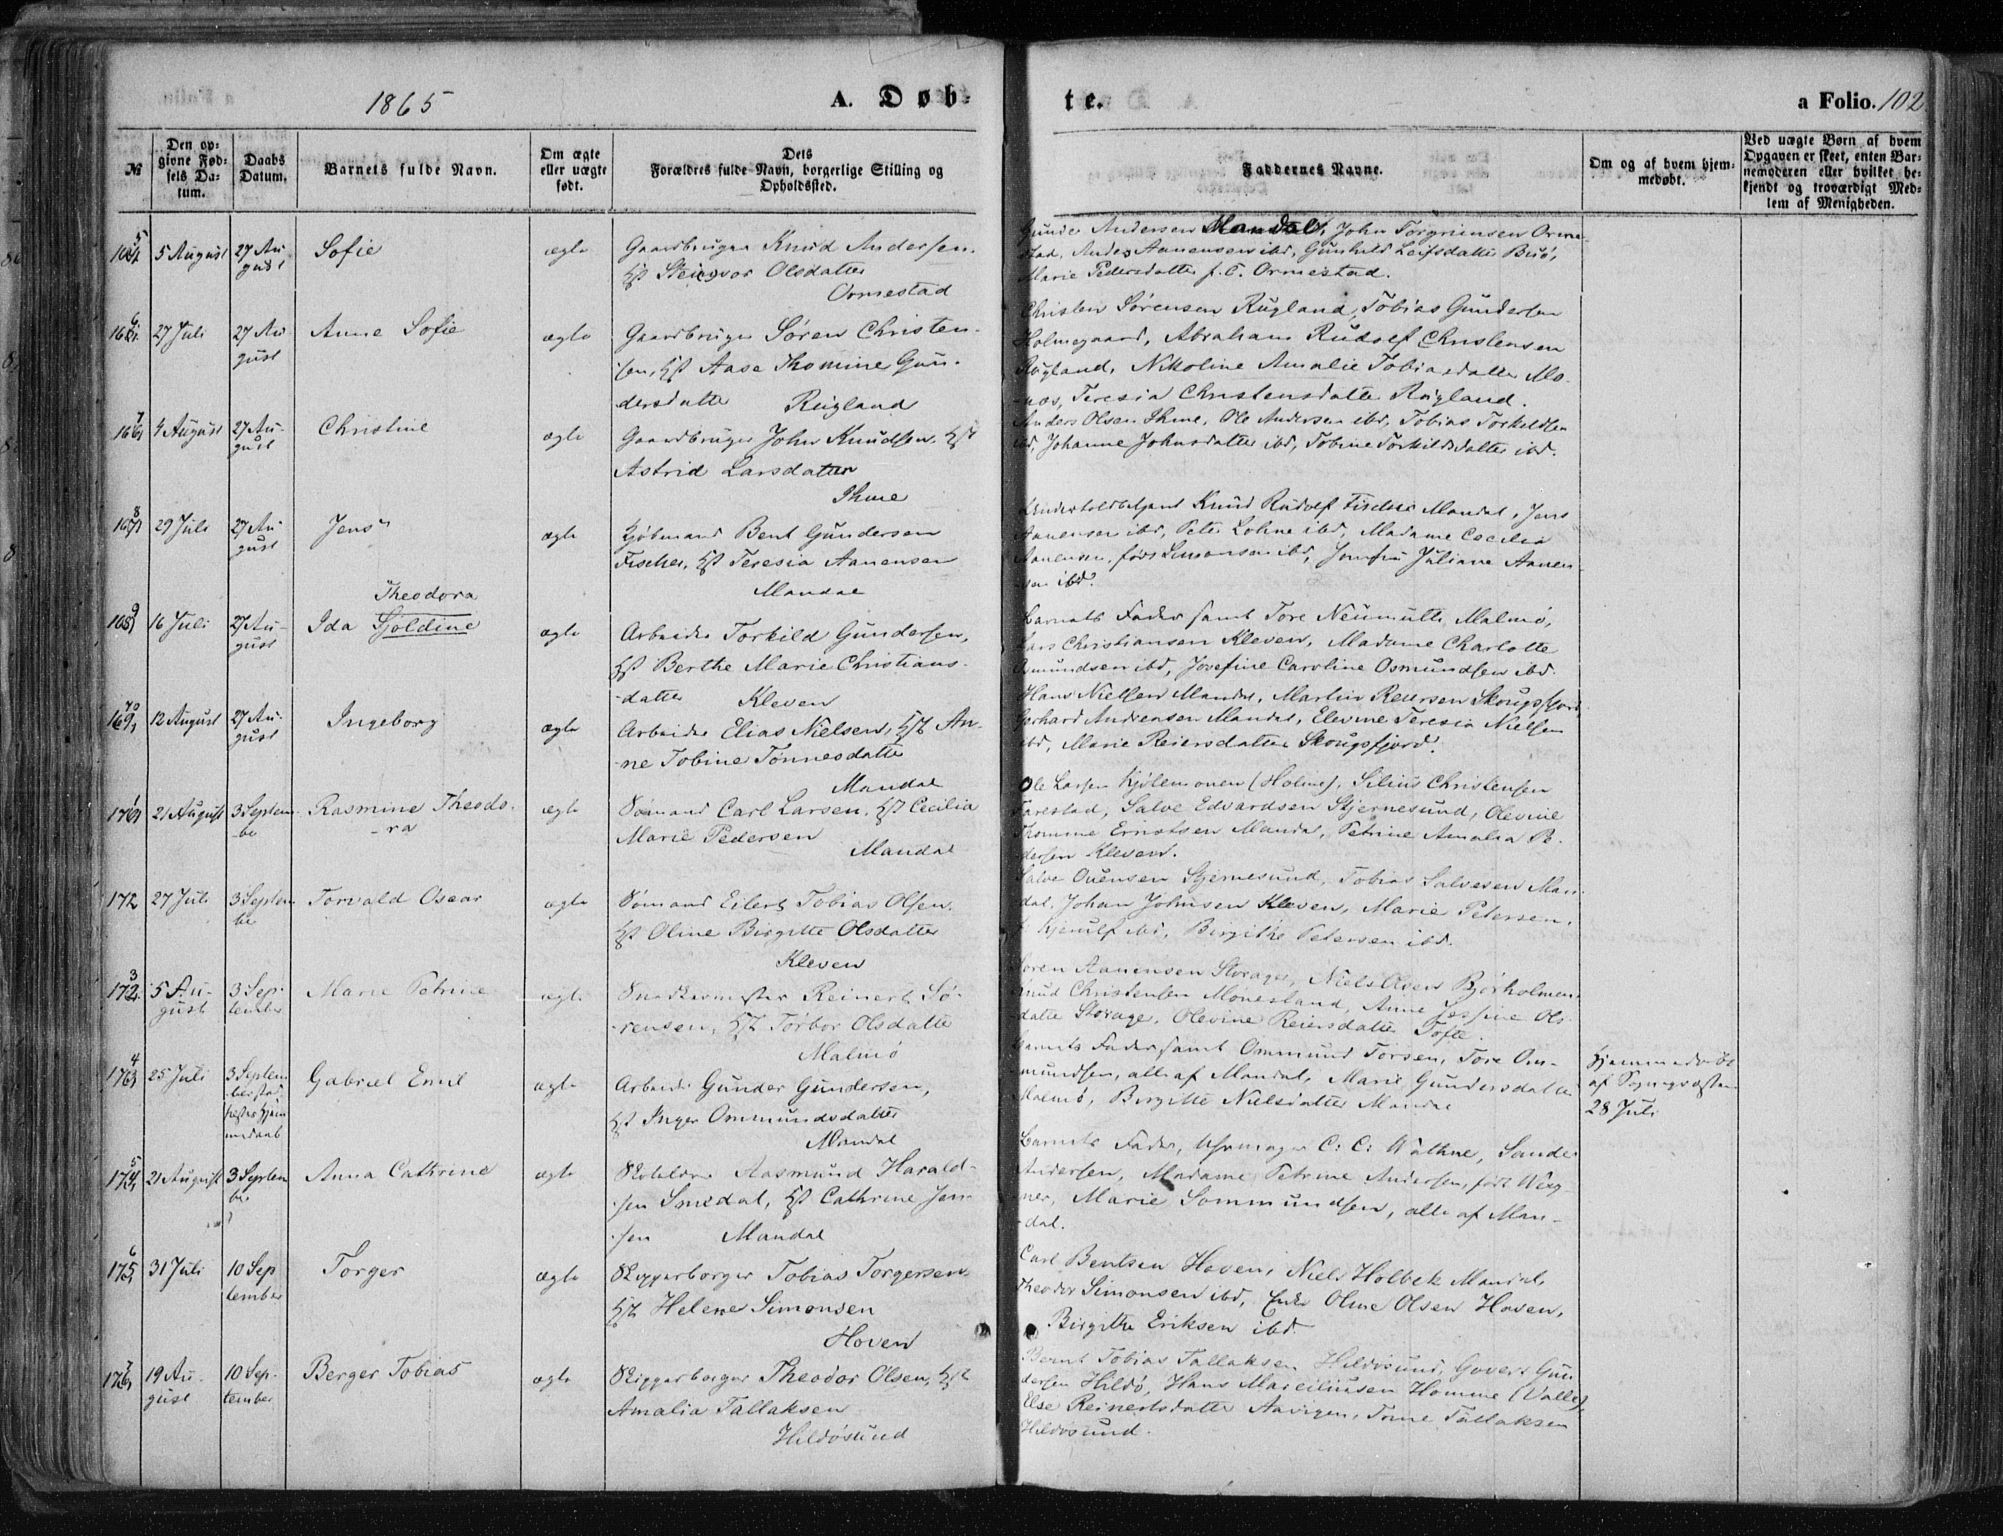 1865
A. Døb-
te.
a Folio. 102
№
Den op-
givne Fød-
sels Da-
tum.
Daabs
Datum.
Barnets fulde Navn.
Om ægte
eller uægte
født.
Dets
Forældres fulde Navn, borgerlige Stilling og
Opholdssted.
Faddernes Navne.
Om og af hvem hjem-
medøbt.
Ved uægte Børn af hvem
Opgaven er skeet, enten Bar-
nemoderen eller hvilket be-
kjendt og troværdigt Med-
lem af Menigheden.
5 August
27 Au-
gust
Sofie
ægte
Gaardbruger Knud Andersen,
Hst Steinvor Olsdatter
Ormestad
Gunder Andersen Mandal, John Torgriimsen Orme-
stad, Anders Aanensen ibd, Gunhild Leifsdatter Buø,
Marie Pedersdatter f. C. Ormestad.
27 Juli
27 Au-
gust
Anne Sofie
ægte
Gaardbruger Søren Christen-
sen, Hst Aase Thomine Gun-
dersdatter Rugland
Christen Sørensen Rugland, Tobias Gundersen
Holmegaard, Abraham Rudolf Christensen
Rugland, Nikoline Amalie Tobiasdatter Mo-
næs, Teresia Christensdatter Rugland.
4 August
27 Au-
gust
Christine
ægte
Gaardbruger John Knudsen, Hst
Astrid Larsdatter
Ihme
Anders Olsen Ihme, Ole Andersen ibd, Tobias Torkildsen
ibd, Johanne Johnsdatter ibd, Tobine Torkildsdatter ibd.
29 Juli
27 Au-
gust
Jens
ægte
Kjøbmand Bent Gundersen
Fischer, Hst Teresia Aanensen
Mandal
Underofficer Knud Rudolf Fischer Mandal, Jens
Aanensen ibd, Peter Lohne ibd, Madame Cecilia
Aanensen, født Simonsen ibd, Jomfru Juliane Aanen-
sen ibd.
16 Juli
27 Au-
gust
Theodora
Ida Sjoldine
ægte
Arbeider Torkild Gundersen,
Hst Berthe Marie Christians-
-datter Kleven
Barnets Fader samt Tore Neumutte Malmø,
Lars Christiansen Kleven, Madame Charlotte
Osmundsen ibd, Josefine Caroline Osmundsen ibd.
12 August
27 Au-
gust
Ingeborg
ægte
Arbeider Elias Nielsen, Hst An-
-ne Tobine Tønnesdatter
Mandal
Hans Nielsen Mandal, Martin Reiersen Skougsfjord,
Gerhard Andreasen Mandal, Elevine Teresia Nielsen
ibd, Marie Reiersdatter Skougsfjord.
21 August
3 Septem-
ber
Rasmine Theodo-
-ra
ægte
Sømand Carl Larsen, Hst Cecilia
Marie Pedersen
Mandal
Ole Larsen Kjølemonen (Holme), Silius Christensen
Farestad, Salve Edvardsen Stjernesund, Olevine
Thomine Ernstsen Mandal, Petrine Amalia Pe-
dersen Kleven.
172
27 Juli
3 Septem-
ber
Torvald Oscar
ægte
Sømand Eilert Tobias Olsen,
Hst Oline Birgitte Olsdatter
Kleven
Salve Ouensen Stjernesund, Tobias Salvesen Man-
dal, Johan Johnsen Kleven, Marie Petersen,
f. Kjerulf ibd, Birgithe Petersen ibd.
5 Au-
gust
3 Sep-
tember
Marie Petrine
ægte
Snedkermester Reinert Sø-
-rensen, Hst Torbor Olsdatter
Malmø
Søren Aanensen Storager, Niels Olsen Bjørholmen,
Knud Christensen Monesland, Anne Josefine Ols-
datter Storage, Olevine Reiersdatter Tofte.
25 Juli
3 Septem-
ber stad-
fæstet Hjem-
medaab
Gabriel Emil
ægte
Arbeider Gunder Gundersen,
Hst Inger Ommundsdatter
Mandal
Barnets Fader samt Ommund Torsen, Tore Om-
mundsen, alle af Mandal, Marie Gundersdatter
Malmø, Birgitte Nielsdatter Mandal
Hjemmedøbt
af Sognepræsten
28 Juli
21 August
3 Septem-
ber
Anna Cathrine
ægte
Aasmund Harald-
-sen Smedal, Hst Cathrine Jen-
-sen Mandal
Barnets Fader, Uhrmager C. C. Wathne, Sander
Andersen, Madame Petrine Andersen, født Weg-
ner, Marie Sommundsen, alle af Man-
-dal.
31 Juli
10 Sep-
tember
Torger
ægte
Skipperborger Tobias Torgersen,
Hst Helene Simonsen
Hoven
Carl Bentsen Hoven, Niels Holbek Mandal,
Theodor Simonsen ibd, Enke Oline Olsen Hoven,
Birgithe Eriksen ibd.
19 Au-
gust
10 Sep-
tember
Berger Tobias
ægte
Skipperborger Theodor Olsen, Hst
Amalia Tallaksen
Hildøsund
Bernt Tobias Tallaksen Hildøsund, Govert Gun-
dersen Hildø, Hans Marciliusen Homme (Valle),
Else Reinertsdatter Aavigen, Tomine Tallaksen
Hildøsund.